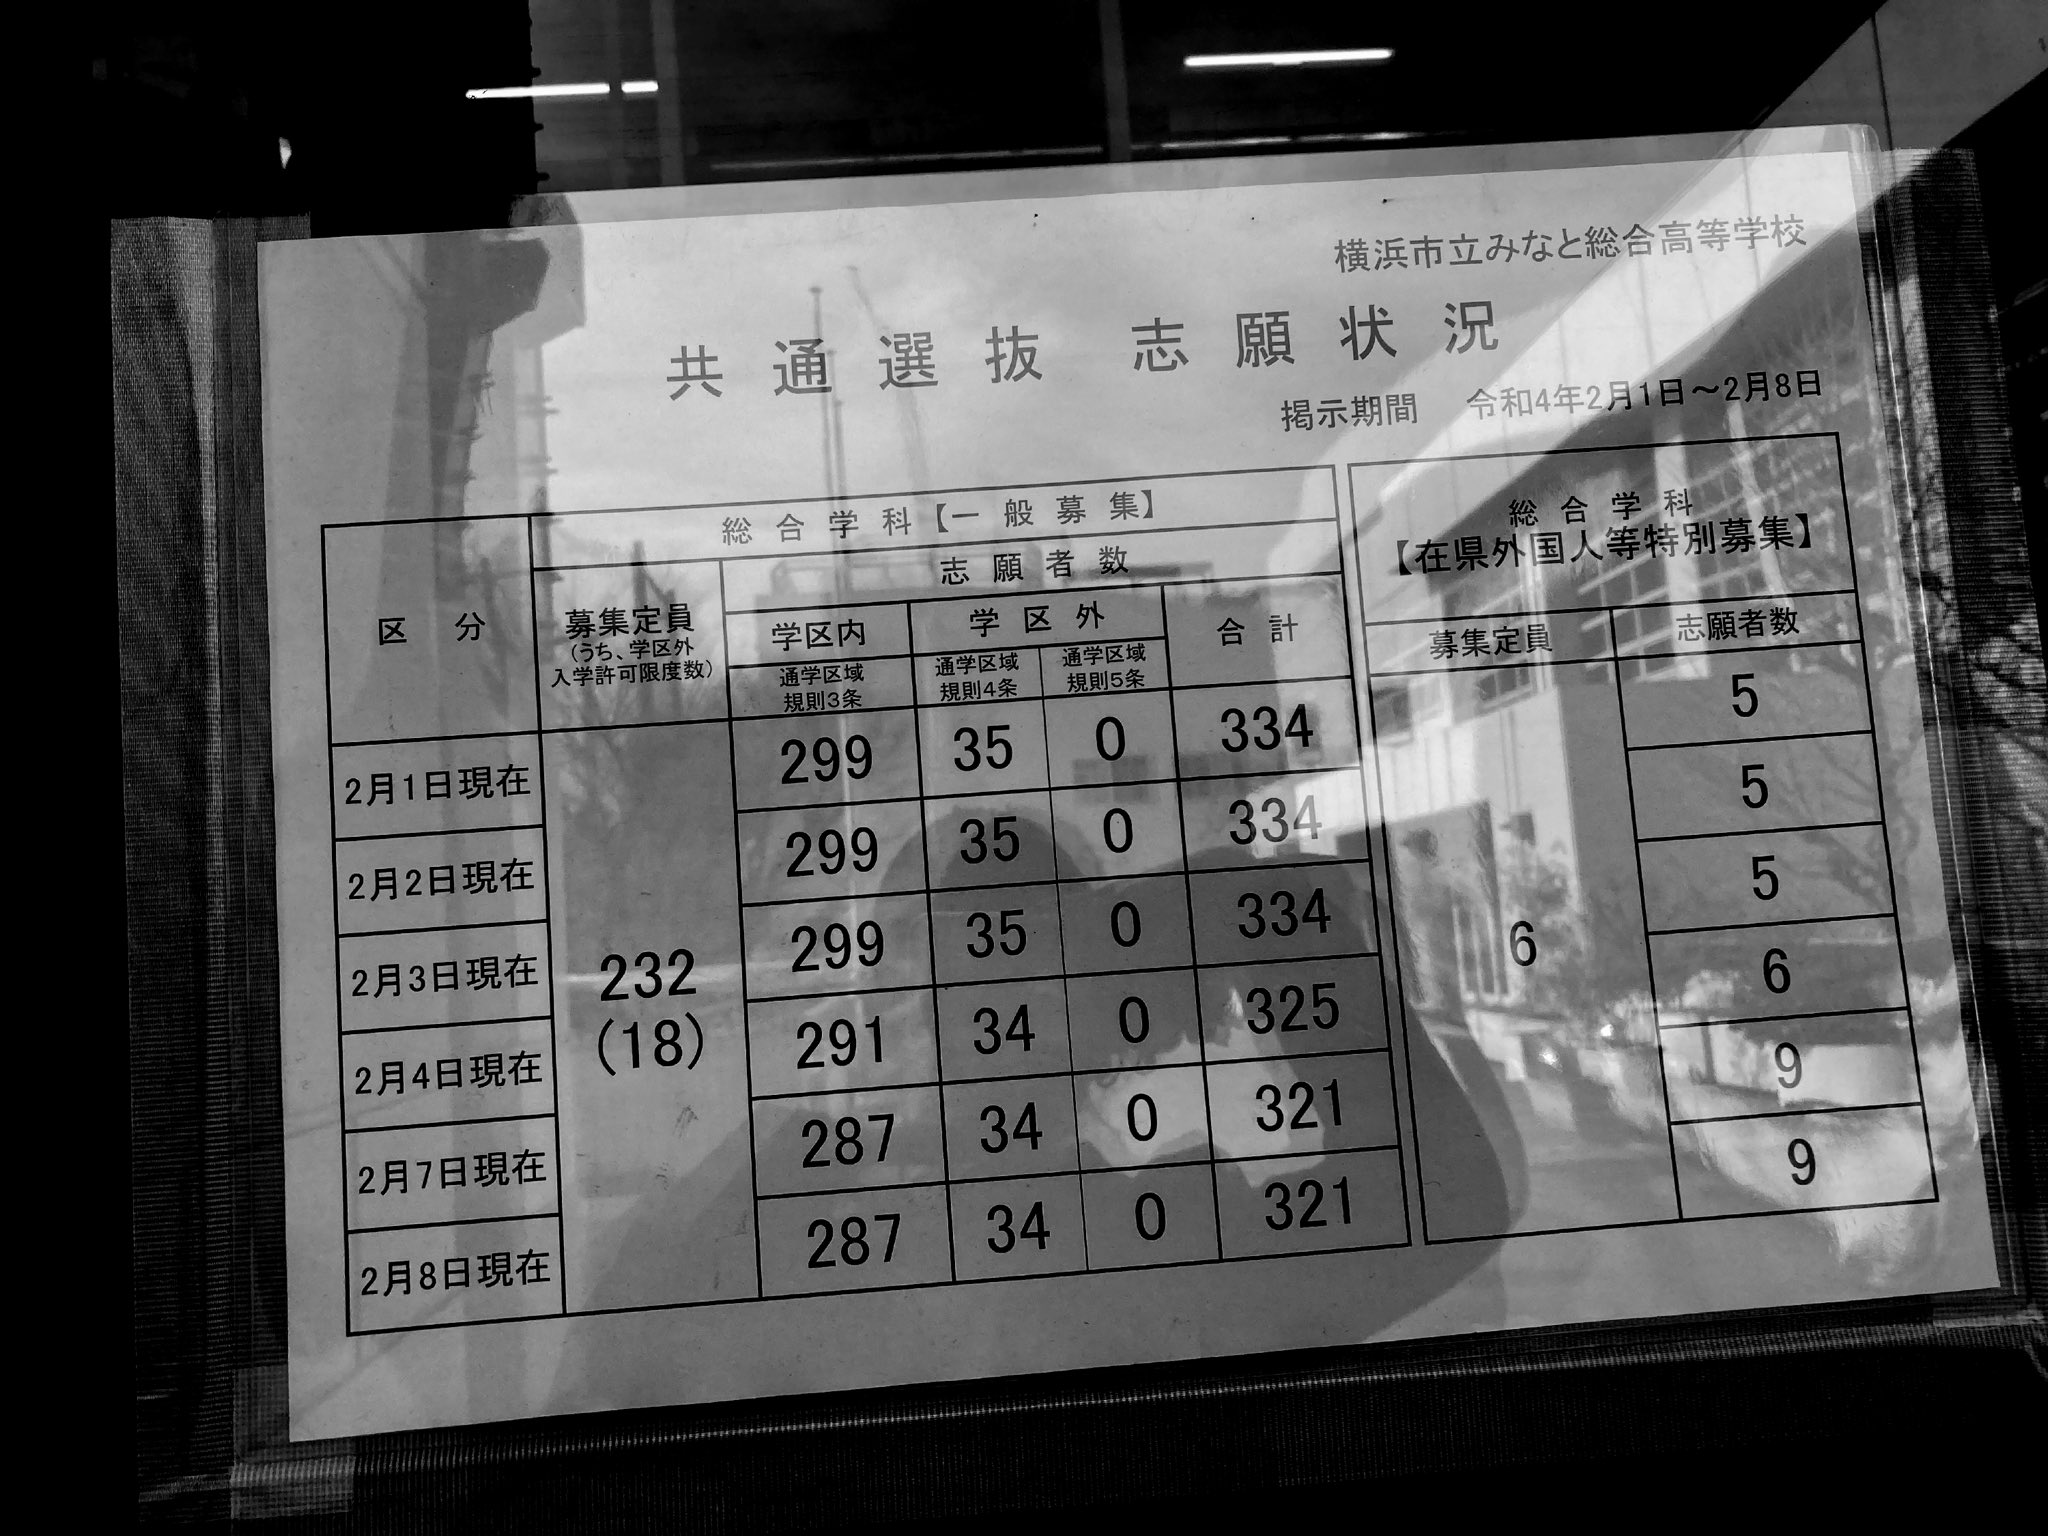 横浜市立みなと総合高等学校
共通選抜 志願状況
掲示期間 令和4年2月1日～2月8日
区分
総合学科【一般募集】
募集定員
(うち、学区外
入学許可限度数)
志願者数
学区内
通学区域
規則3条
学区外
通学区域
規則4条
通学区域
規則5条
合計
総合学科
【在県外国人等特別募集】
募集定員
志願者数
2月1日現在 299 35 0 334 5
2月2日現在 299 35 0 334 5
2月3日現在 299 35 0 334 5
232
(18)
6
2月4日現在 291 34 0 325 6
2月7日現在 287 34 0 321 9
2月8日現在 287 34 0 321 9